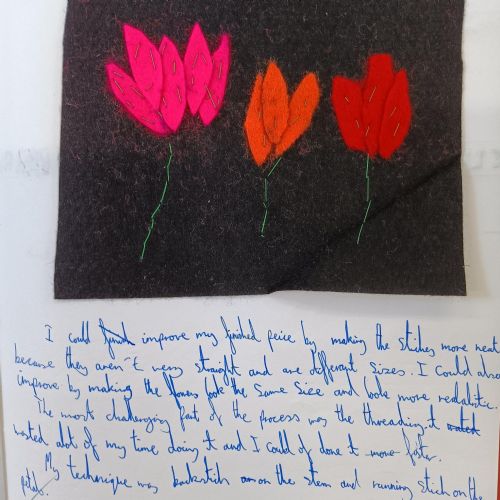 I could finish improve my finished peice by making the stiches more neat
because they aren't very straight and are different sizes. I could also
improve by making the flowers look the same size and look more realalistic.
The most challenging part of the process was the threading it
wasted alot of my time doing it and I could of done it more faster.
My technique was backstich on the stem and running stich on the
petals.